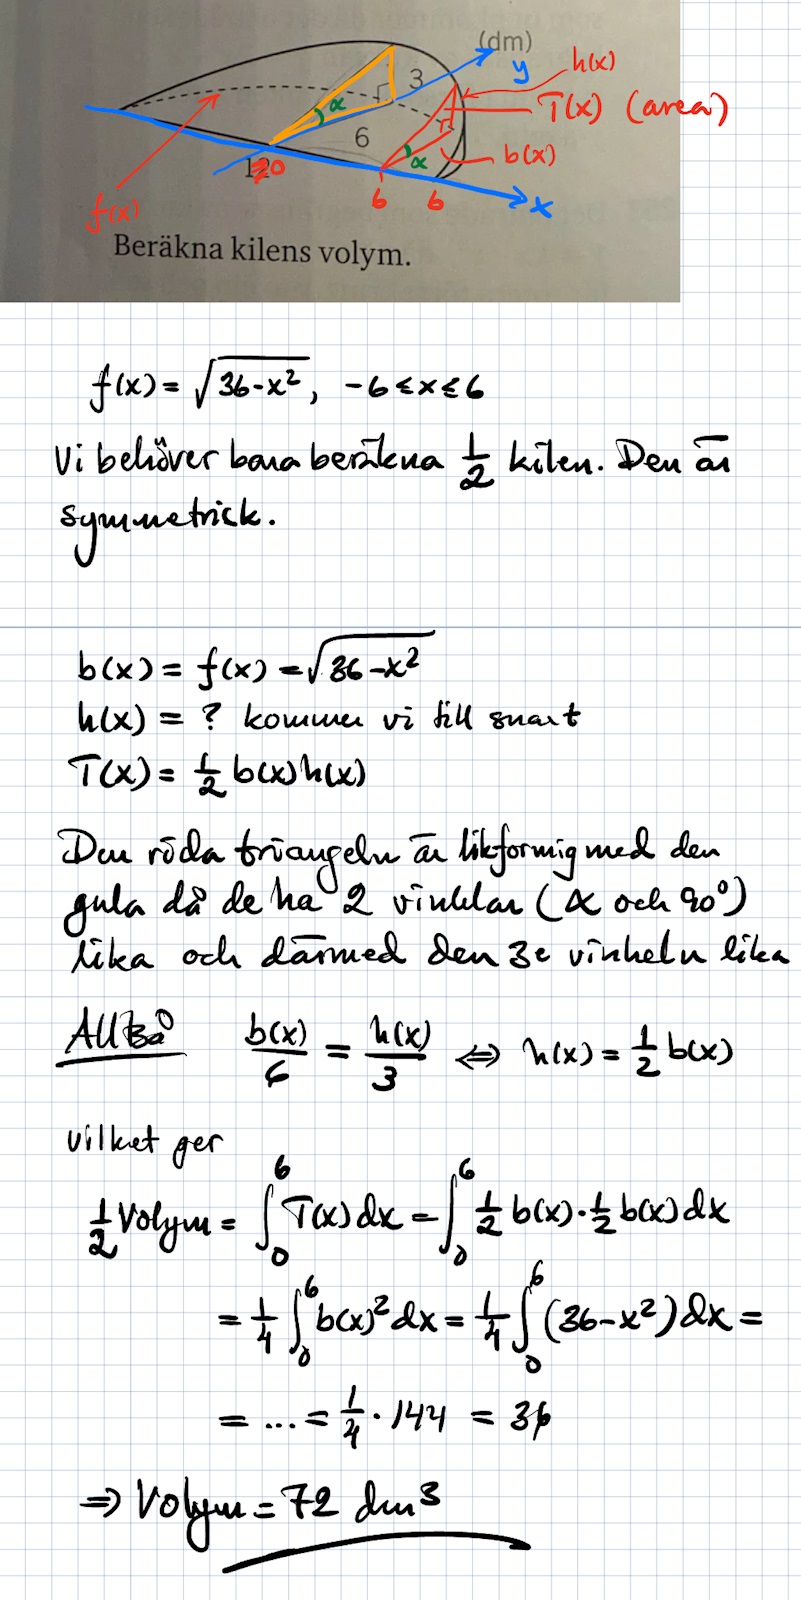 (dm)
y
h(x)
3
T(x) (area)
α
6
α
b(x)
0
f(x)
6
6
x
Beräkna kilens volym.
f(x) = √(36-x²), -6 ≤ x ≤ 6
Vi behöver bara beräkna 1/2 kilen. Den är
symmetrick.
b(x) = f(x) = √(36-x²)
h(x) = ? kommer vi till snart
T(x) = 1/2 b(x)h(x)
Den röda triangeln är likformig med den
gula då de ha 2 vinklar (α och 90°)
lika och därmed den 3e vinkeln lika
Alltså b(x)/6 = h(x)/3 ⇔ h(x) = 1/2 b(x)
vilket ger
1/2 Volym = ∫₀⁶ T(x) dx = ∫₀⁶ 1/2 b(x)·1/2 b(x) dx
= 1/4 ∫₀⁶ b(x)² dx = 1/4 ∫₀⁶ (36-x²) dx =
= ... = 1/4 · 144 = 36
⇒ Volym = 72 dm³